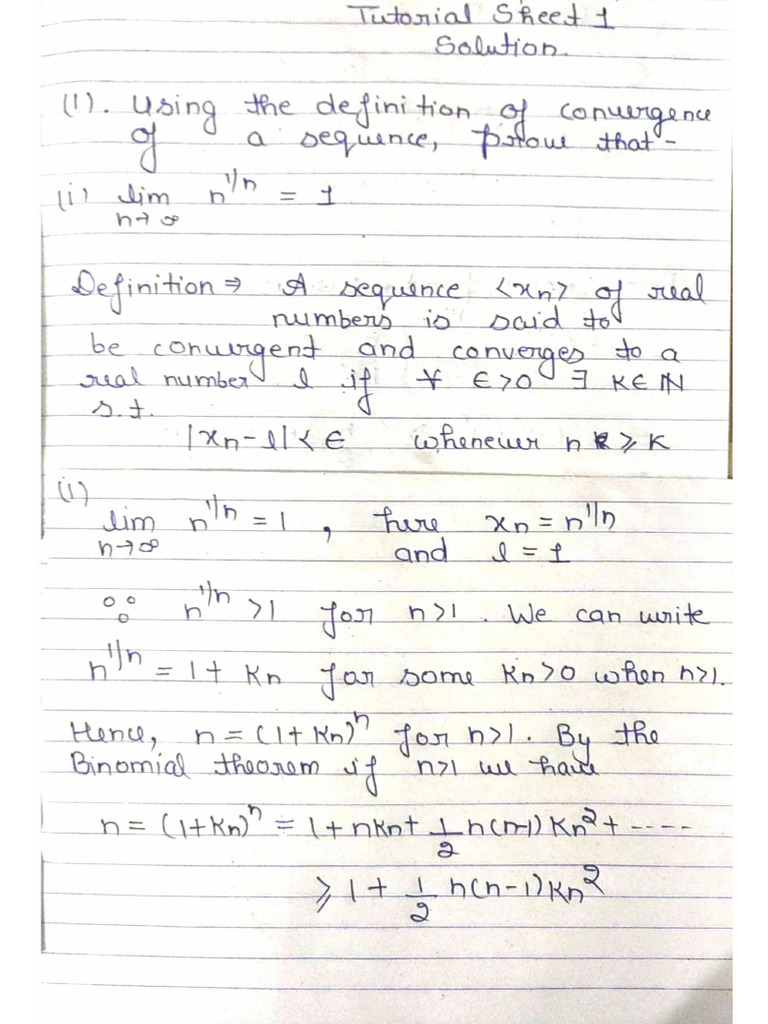 Tutorial Sheet 1
Solution.
(1). Using the definition of convergence
of a sequence, prove that -
(i) lim n^{1/n} = 1
n→∞
Definition ⇒ A sequence <xn> of real
numbers is said to
be convergent and converges to a
real number l if ∀ ∈>0 ∃ K∈ℕ
s.t.
|xn - l| < ∈ whenever n ≥ K
(i)
lim n^{1/n} = 1, here xn = n^{1/n}
n→∞ and l = 1
∵ n^{1/n} >1 for n>1. We can write
n^{1/n} = 1 + Kn for some Kn>0 when n>1.
Hence, n = (1+Kn)^n for n>1. By the
Binomial theorem if n>1 we have
n = (1+Kn)^n = 1+nKn+ 1/2 n(n-1) Kn^2 + ----
≥ 1 + 1/2 n(n-1)Kn^2